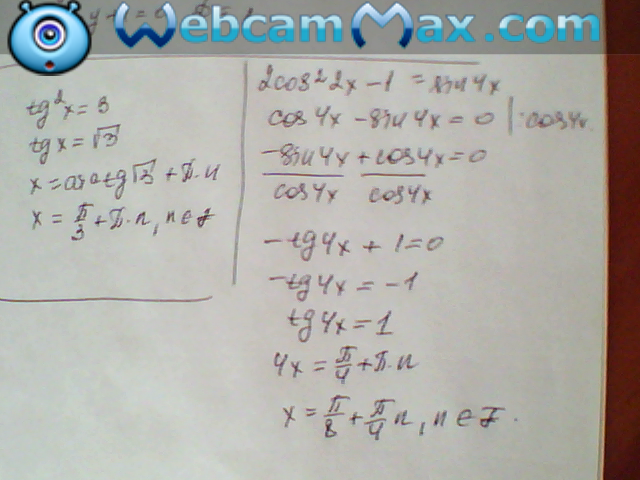 WebcamMax.com
tg²x = 3
tg x = √3
x = arctg√3 + π·n
x = π/3 + π·n, n ∈ Z
2cos²2x - 1 = sin4x
cos4x - sin4x = 0 | :cos4x
-sin4x/cos4x + cos4x/cos4x = 0
-tg4x + 1 = 0
-tg4x = -1
tg4x = 1
4x = π/4 + π·n
x = π/8 + π/4 n, n ∈ Z.